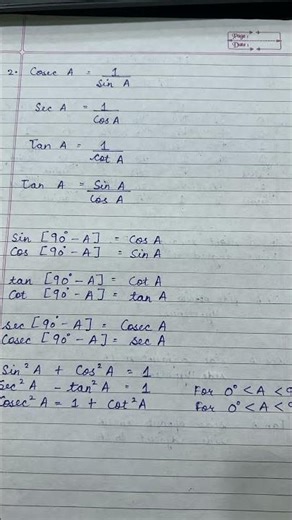 Page :
Date :
2. Cosec A = 1/Sin A
Sec A = 1/Cos A
Tan A = 1/Cot A
Tan A = Sin A/Cos A
Sin [90° - A] = Cos A
Cos [90° - A] = Sin A
tan [90° - A] = Cot A
Cot [90° - A] = tan A
sec [90° - A] = Cosec A
Cosec [90° - A] = sec A
Sin² A + Cos² A = 1
Sec² A - tan² A = 1 For 0° < A <
Cosec² A = 1 + Cot² A For 0° < A <